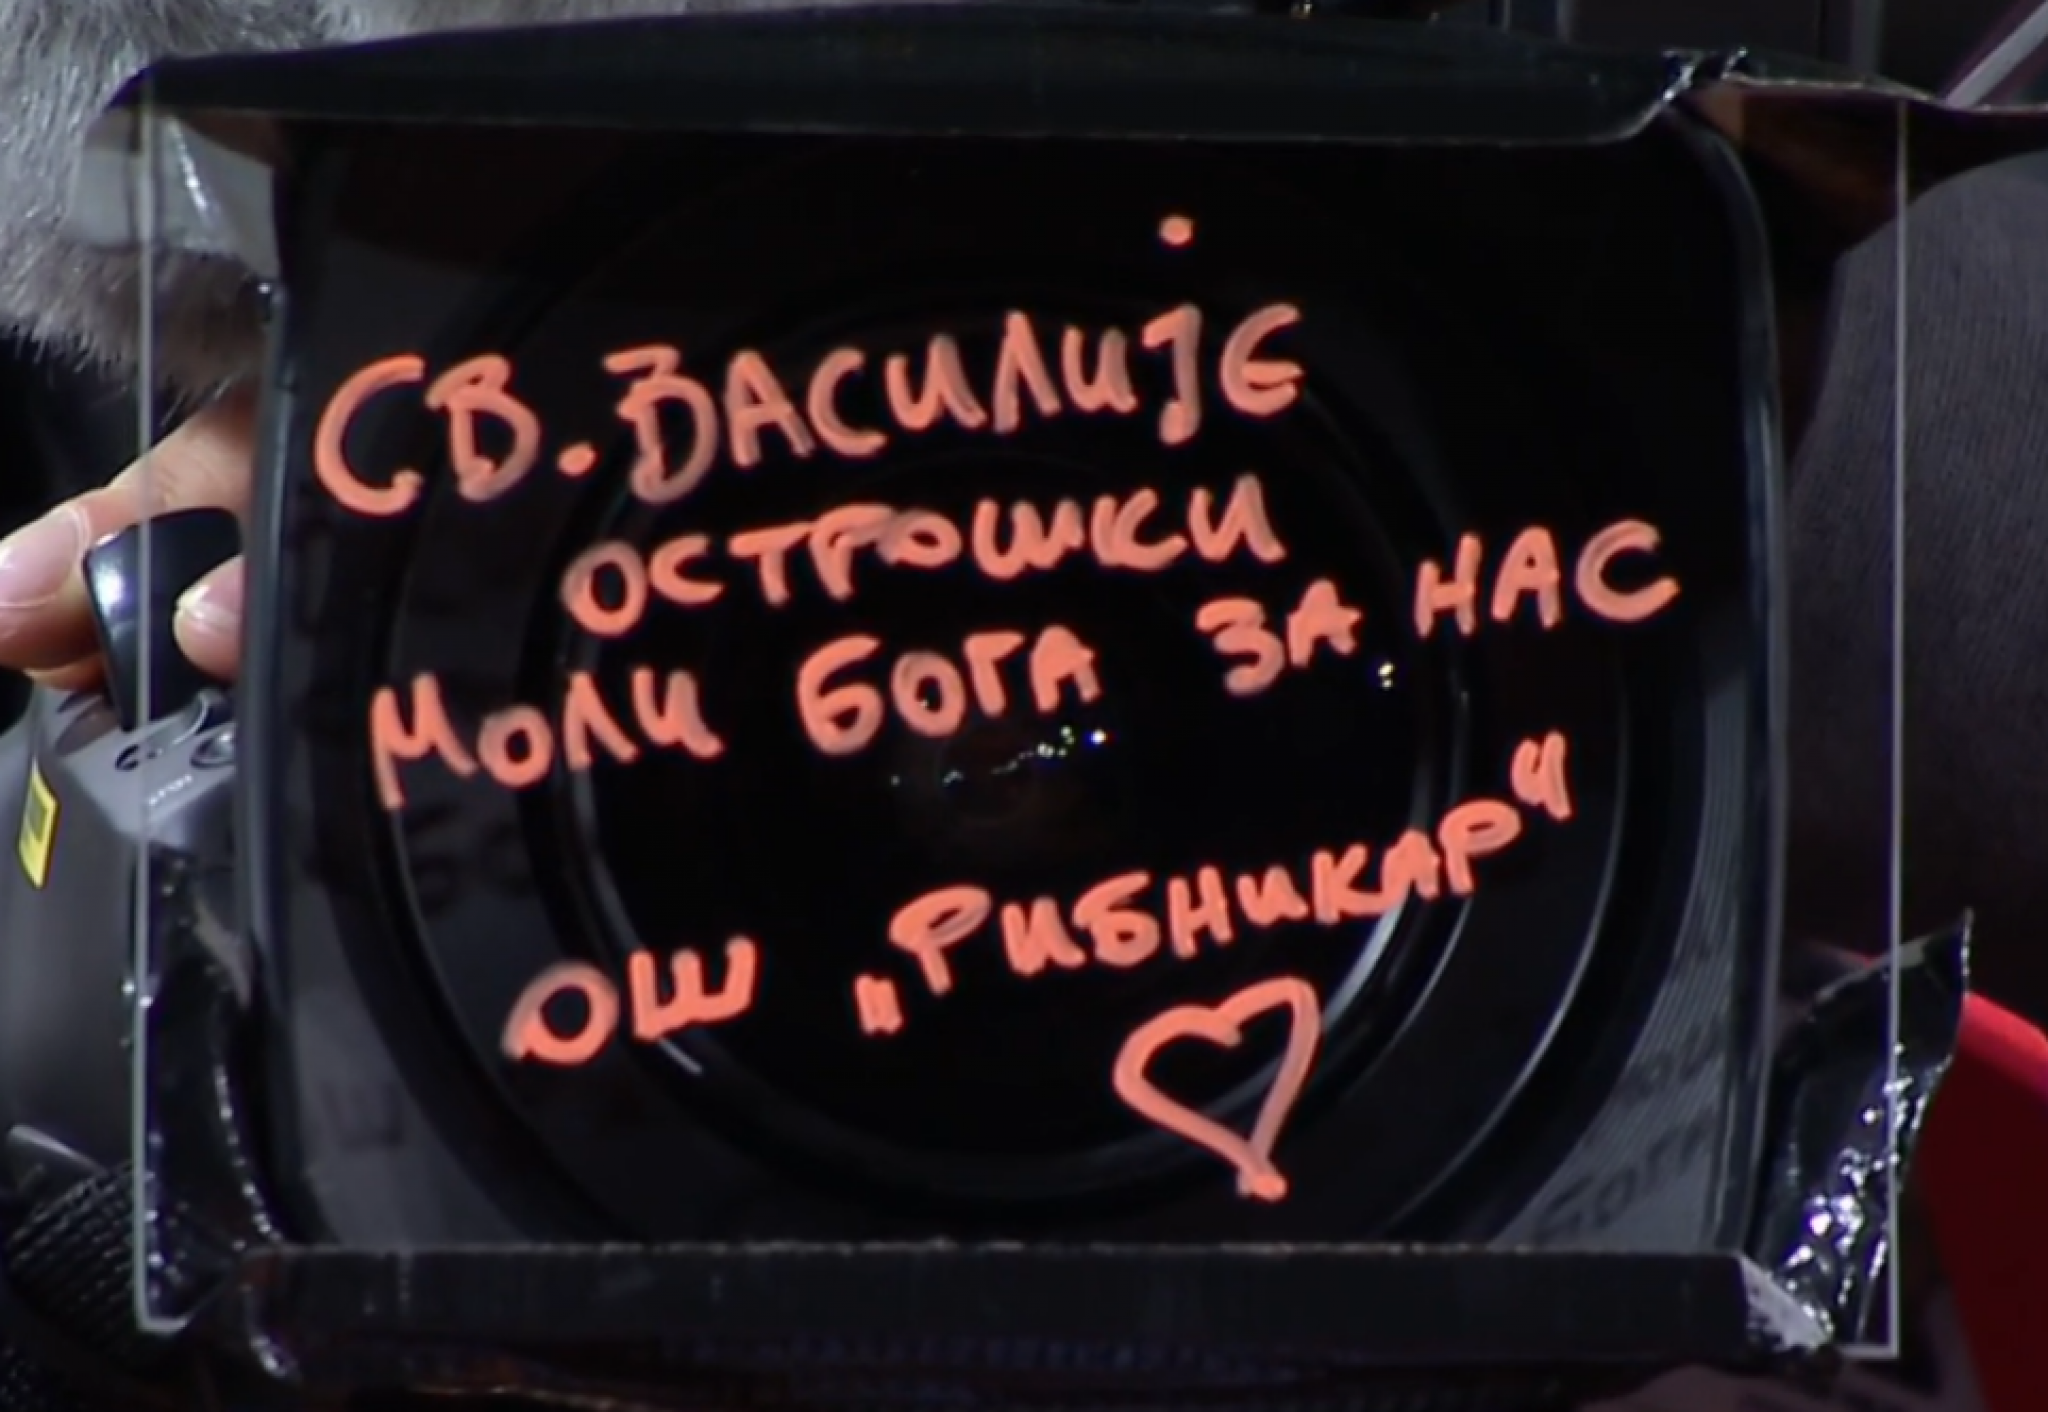 СВ. ВАСИЛИЈЕ
ОСТРОШКИ
МОЛИ БОГА ЗА НАС
ОШ „РИБНИКАР“